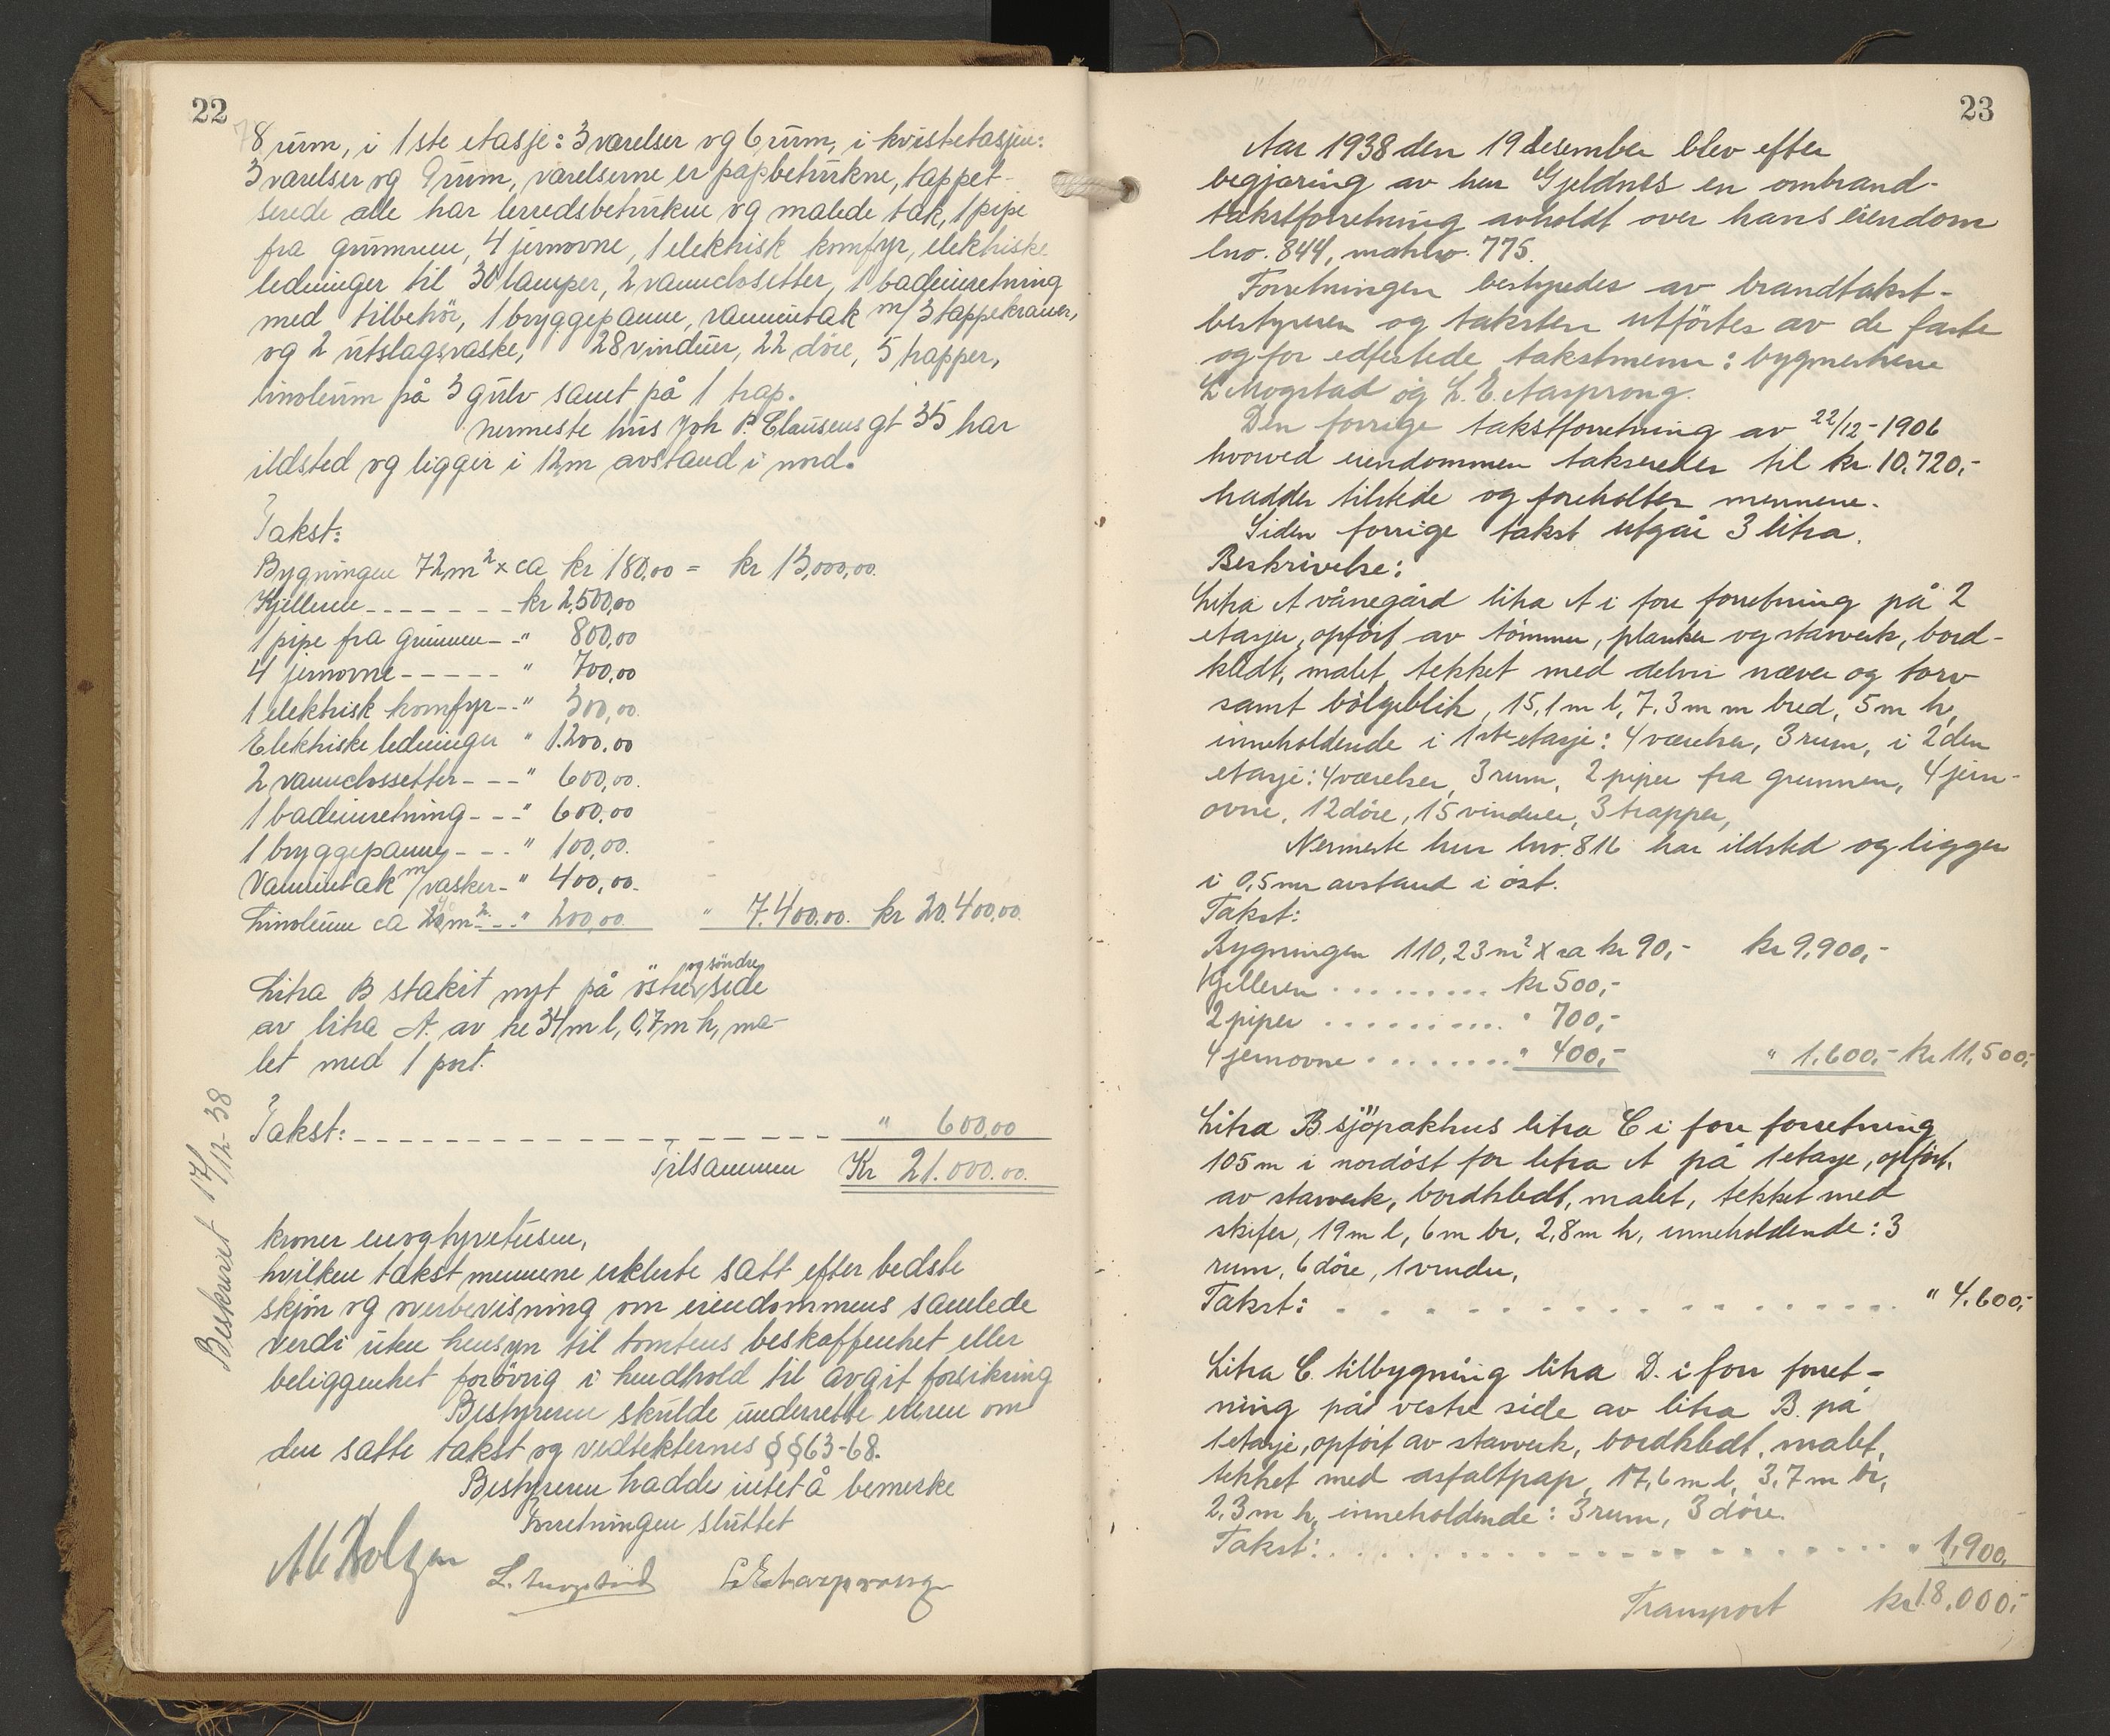 22
8 rum, i 1ste etasje: 3 værelser og 6 rum, i kvistetasjen:
3 værelser og 9 rum, værelserne er papbetrukne, tappet-
serede alle har lerredsbetrukne og malede tak, 1 pipe
fra grunnen, 4 jernovne, 1 elektrisk komfyr, elektriske
ledninger til 30 lamper, 2 vannclosetter, 1 badeinretning
med tilbehör, 1 bryggepanne, vanninntak m/3 tappekraner,
og 2 utslagsvaske, 28 vinduer, 22 döre, 5 trapper,
linoleum på 3 gulv samt på 1 trap.
Nermeste hus Joh P. Clausens gt 35 har
ildsted og ligger i 12 m avstand i nord.
Takst:
Bygningen 72 m² x ca kr 180,00 = kr 13,000,00.
Kjelleren - - - - - - - kr 2,500,00
1 pipe fra grunnen - - " 800,00
4 jernovne - - - - - " 700,00
1 elektrisk komfyr - - " 300,00.
Elektriske ledninger " 1.200,00
2 vannclossetter - - - " 600,00.
1 badeinretning - - - " 600,00
1 bryggepanne - - - " 100,00.
Vanninntak m/vasker - " 400,00.
Linoleum ca m² - - " 200,00. " 7.400.00. kr 20.400,00.
Litra B stakit nyt på östre og söndre side
av litra A. av tre 34 m l, 0,7 m h, ma-
let med 1 port.
Takst: - - - - - - - - - - - - - - " 600,00
Tilsammen Kr 21.000.00.
kroner enogtyvetusen,
hvilken takst mennene erklerte satt efter bedste
skjön og overbevisning om eiendommens samlede
verdi uten hensyn til tomtens beskaffenhet eller
beliggenhet forövrig i hendhold til avgit forsikring
Bestyreren skulde underrette eieren om
den satte takst og vedtekternes §§ 63-68.
Bestyreren hadde intet å bemerke
Forretningen sluttet
L. Mogstad L E Aasprong
Beskrevet 17/12-38
23
Aar 1938 den 19 desember blev efter
begjæring av herr Gjeldnes en ombrand-
takstforretning avholdt over hans eiendom
lno. 844, matrno. 775.
Forretningen bestyredes av brandtakst-
bestyreren og taksten utförtes av de faste
og for edfestede takstmenn: bygmestrene
L Mogstad og L. E. Aasprong.
Den forrige takstforretning av 22/12-1906
hvorved eiendommen takseredes til kr. 10.720,-
haddes tilstede og foreholdtes mennene.
Siden forrige takst utgår 3 litra.
Beskrivelse:
Litra A vånegård litra A i forr forretning på 2
etasjer, opfört av tömmer, planker og stavverk, bord-
klædt, malet, tekket med delvis næver og torv
samt bölgeblik, 15,1 m l, 7,3 m m bred, 5 m h,
inneholdende i 1ste etasje: 4 værelser, 3 rum, i 2den
etasje: 4 værelser, 3 rum, 2 piper fra grunnen, 4 jern-
ovne, 12 döre, 15 vinduer, 3 trapper,
Nermeste hus lno. 816 har ildsted og ligger
i 0,5 m avstand i öst.
Takst:
Bygningen 110,23 m² x ca kr 90,- kr 9,900,-
Kjelleren . . . . . . . . . kr 500,-
2 piper . . . . . . . . . . " 700,-
4 jernovne . . . . . . . . " 400,- " 1,600,- kr 11,500,-
Litra B "sjöpakhus litra C i forr forretning
105 m i nordöst for litra A på 1 etasje, opfört,
av stavverk, bordklædt, malet, tekket med
skifer, 19 m l, 6 m br, 2,8 m h, inneholdende: 3
rum, 6 döre, 1 vindu,
Takst: . . . . . . . . . . . . . . . . " 4.600,-
Litra C. tilbygning litra D. i forr forret-
ning på vestre side av litra B. på
1 etasje, opfört av stavverk, bordklædt, malet,
tekket med asfaltpap, 17,6 m l, 3,7 m br,
2,3 m h, inneholdende: 3 rum, 3 döre.
Takst: . . . . . . . . . . . . . . . . " 1,900,
Transport kr 18.000,-